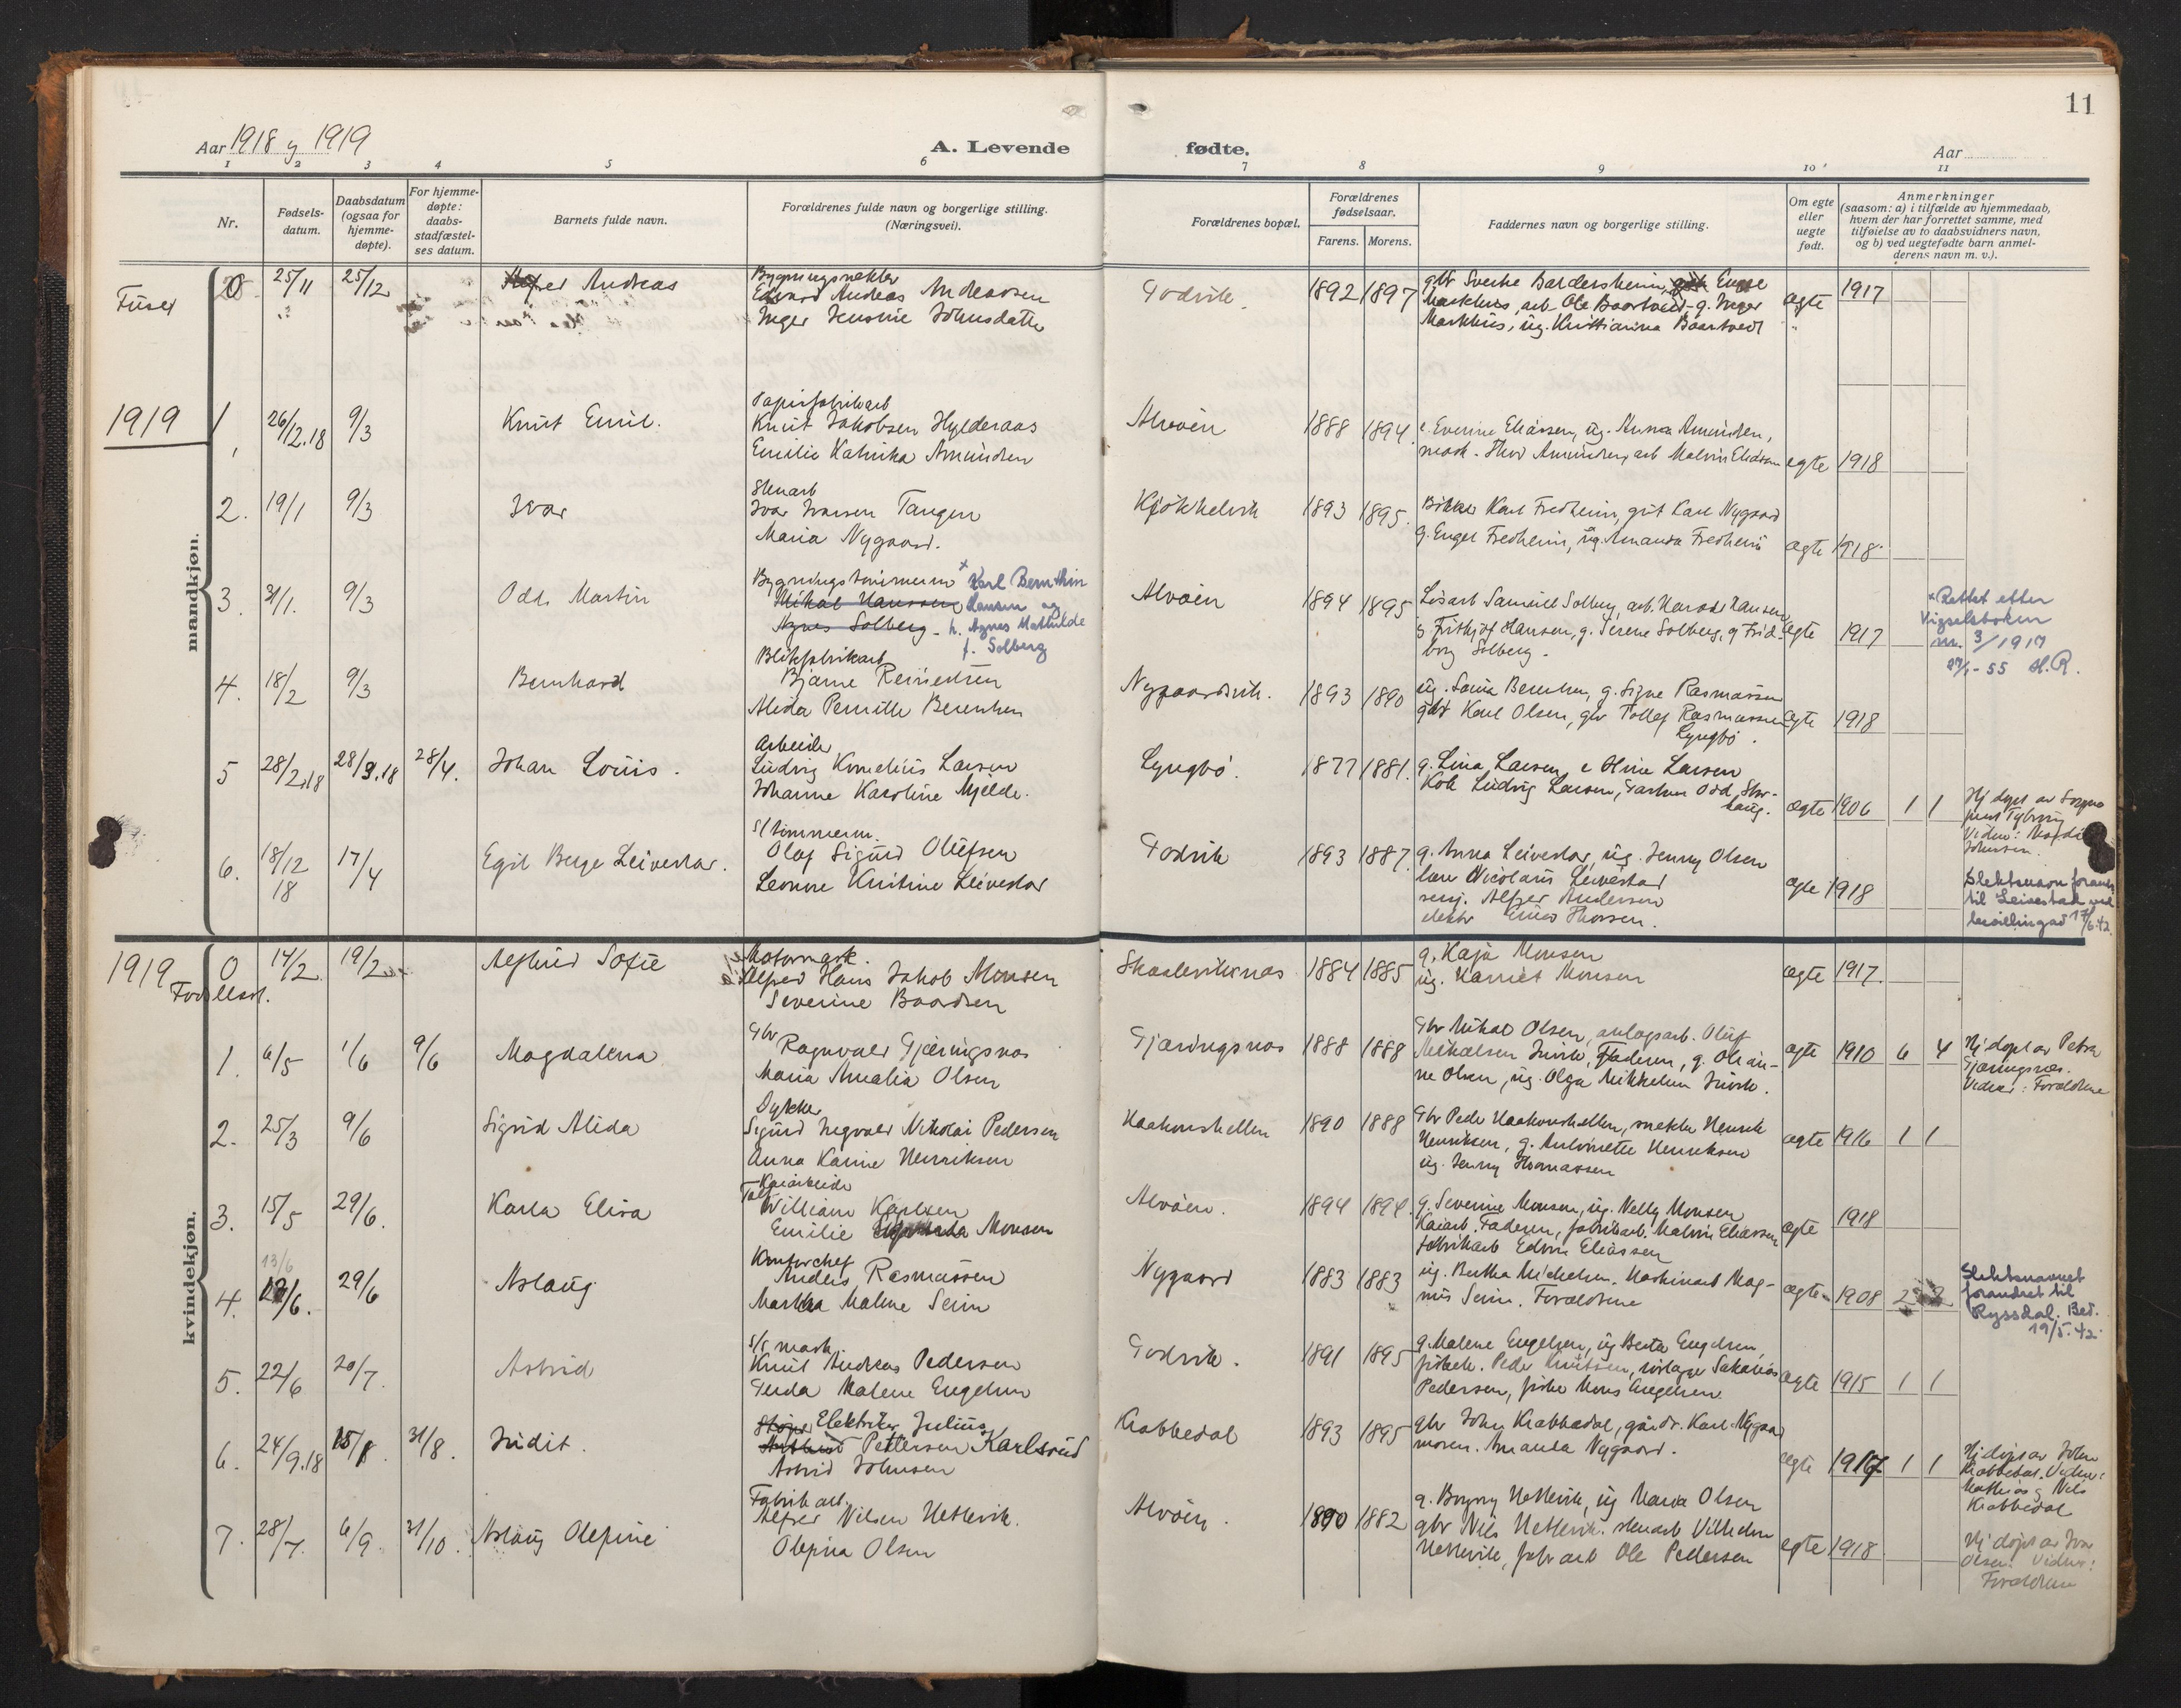 11
Aar 1918 og 1919
A. Levende fødte.
Aar
1 2 3 4 5 6 7 8 9 10 11
Nr.
Fødsels-
datum.
Daabsdatum
(ogsaa for
hjemme-
døpte).
For hjemme-
døpte:
daabs-
stadfæstel-
ses datum.
Barnets fulde navn.
Forældrenes fulde navn og borgerlige stilling.
(Næringsvei).
Forældrenes bopæl.
Forældrenes
fødselsaar.
Farens. Morens.
Faddernes navn og borgerlige stilling.
Om egte
eller
uegte
født.
Anmerkninger
(saasom: a) i tilfælde av hjemmedaab,
hvem der har forrettet samme, med
tilføielse av to daabsvidners navn,
og b) ved uegtefødte barn anmel-
derens navn m. v.).
mandkjøn.
0 25/11 25/12 Andreas
Edvard Andreas Andreassen
Inger Jensine Johnsdatter
Godvik 1892 1897
Markhus, arb. Ole Baartveit, g. Inger
Markhus, ug. Kristianna Baartvedt
ægte 1917
1919
1, 26/2.18 9/3 Knut Emil.
Papirfabrikarb
Knut Jakobsen Hylderaas
Emilie Katinka Amundsen
Alvøen 1888 1894.
e. Everine Eliassen, ug. Anna Amundsen,
mask. Thor Amundsen, arb Malvin Eliassen
egte 1918
2. 19/1 9/3 Ivar
Stenarb
Ivar Ivarsen Tangen
Maria Nygaard.
Kjøkkelvik 1893 1895.
Karl Fredheim, gut Karl Nygaard
g. Engel Fredheim, ug. Amanda Fredheim
ægte 1918.
3. 31/1. 9/3 Odd Martin
Bygningstømmerm x Karl Bernthin
Mikal Hanssen Hansen og
Agnes Solberg - h. Agnes Mathilde
f. Solberg
Alvøen 1894 1895
Løsarb Samuel Solberg, arb. Harald Hansen
g. Fritjof Hansen, g. Serene Solberg, g Frid-
borg Solberg.
ægte 1917
x Rettet etter
Vigselsboken
nr. 3/1917
H.R.
4. 18/2 9/3 Bernhard
Blikfabrikarb
Bjarne Reinertsen
Alida Pernille Berentsen
Nygaardsvik. 1893 1890
ug. Sania Berentsen, g. Signe Rasmassen
gbr Karl Olsen, gbr Tollef Rasmassen
Lyngbø.
ægte 1918
5 28/2.18 28/3.18 28/4. Johan Louis.
Arbeider
Ludvig Kornelius Larsen
Johanne Karoline Mjelde.
Lyngbø. 1877 1881.
g. Lina Larsen, e Oline Larsen
Kok Ludvig Larsen, Gartner Odd Stor-
haug.
ægte 1906 1 1
Hj døpt av Sogne
prest Tybring
6. 18/12 18 17/4 Egil Berge Leivestar.
S/tømmerm.
Olaf Sigurd Olufsen
Leonore Kristine Leivestar
Godvik 1893 1887.
g. Anna Leivestar, ug. Jenny Olsen
lærer Nicolaus Leivestad
Alfred Andersen
ægte 1918
Slektsnavn forandret
til Leivestad ved
bevilling ad 17/6.42.
kvindekjøn.
1919
0 14/2 19/2 Alfhild Sofie
Motormask.
Alfred Hans Jakob Monsen
Severine Baardsen
Skaaleviknes 1884 1885
g. Kaja Monsen
ug. Harriet Monsen
ægte 1917.
1. 6/5 1/6 9/6 Magdalena
Gbr
Ragnvald Gjæringsnes
Maria Amalia Olsen
Gjæringsnes 1888 1888
Gbr Mikal Olsen, anlægsarb. Oluf
Mikalsen Juvik, Faderen, g. Olsian-
ne Olsen, ug. Olga Mikkelsen Juvik.
ægte 1910 6 4
Hj døpt av Petra
Gjæringsnes.
Vidner: Forældrene
2. 25/3 9/6 Sigrid Alida
Dykker
Sigurd Ingvald Nikolai Pedersen
Anna Karine Henriksen
Haakonshellen 1890 1888
Gbr Peder Haakonshellen, snekker Henrik
Henriksen, g. Antoinette Henriksen
ug. Jenny Thomassen
ægte 1916 1 1
3. 15/5 29/6. Karla Elisa
Kaiarbeider
William Karlsen
Emilie Monsen
Alvøen. 1894 1894.
g. Severine Monsen, ug. Nelly Monsen
Kaiarb. Faderen, fabrikarb. Malvin Eliassen
fabrikarb Edvin Eliassen
ægte 1918
4. 13/6 29/6 Aslaug
Kontorchef
Anders Rasmassen
Martha Malene Seim
Nygaard 1883 1883
ug. Bertha Michelsen. Maskinarb Mag-
nus Seim. Forældrene
ægte 1908 2
Slektsnavnet
forandret til
Ryssdal. Bev.
19/5.42.
5. 22/6 20/7. Astrid
S/s mask.
Knut Andreas Pedersen
Gerda Malene Engelsen
Godvik. 1891 1895
g. Malene Engelsen, ug Berta Engelsen,
fiskeh. Peder Knutsen, Sakarias
Pedersen, fisker Mons Engelsen
ægte 1915 1 1
6. 24/9.18 15/8 31/8. Judit.
Elektriker Julius
Pettersen Karlsrud
Astrid Johnsen
Krabbedal 1893 1895
gbr John Krabbedal, gårdbr. Karl Nygaard
moren. Amanda Nygaard.
ægte 1917 1 1
Hj døpt av John
Krabbedal. Vidner:
Mathias og Nils
Krabbedal
7. 28/7. 6/9. 31/10. Aslaug Olefine
Fabrikarb.
Alfred Nilsen Hetlevik.
Olefina Olsen
Alvøen. 1890 1882
g. Borgny Hetlevik, ug Maria Olsen
gbr Nils Hetlevik. stenarb Vilhelm
Hetlevik, fabr arb Ole Pedersen
egte 1918.
Hj døpt av Ivar
Olsen. Vidner:
Forældrene